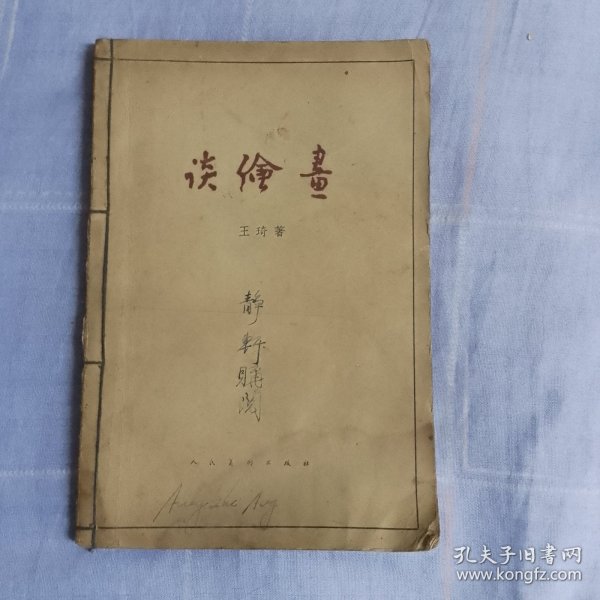 谈繪畫
王琦著
静
購閲
人民美術出版社
孔夫子旧書网
www.kongfz.com